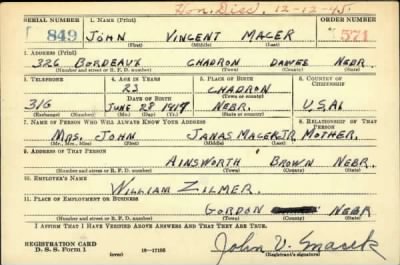 Hon. Disc. 12-12-45
SERIAL NUMBER 1. NAME (Print) ORDER NUMBER
849 JOHN VINCENT MACER 571
(First) (Middle) (Last)
2. ADDRESS (Print)
326 BORDEAUX CHADRON DAWES NEBR.
(Number and street or R. F. D. number) (Town) (County) (State)
3. TELEPHONE 4. AGE IN YEARS 5. PLACE OF BIRTH 6. COUNTRY OF CITIZENSHIP
23 CHADRON
DATE OF BIRTH (Town or county)
316 JUNE 28 1917 NEBR. U.S.A.
(Exchange) (Number) (Mo.) (Day) (Yr.) (State or country)
7. NAME OF PERSON WHO WILL ALWAYS KNOW YOUR ADDRESS 8. RELATIONSHIP OF THAT PERSON
MRS. JOHN JANAS MACEK JR. MOTHER.
(Mr., Mrs., Miss) (First) (Middle) (Last)
9. ADDRESS OF THAT PERSON
AINSWORTH BROWN NEBR.
(Number and street or R. F. D. number) (Town) (County) (State)
10. EMPLOYER'S NAME
WILLIAM ZILMER.
11. PLACE OF EMPLOYMENT OR BUSINESS
GORDON NEBR
(Number and street or R. F. D. number) (Town) (County) (State)
I AFFIRM THAT I HAVE VERIFIED ABOVE ANSWERS AND THAT THEY ARE TRUE.
REGISTRATION CARD
D. S. S. Form 1 (over) 16-17105
John V. Macek
(Registrant's signature)